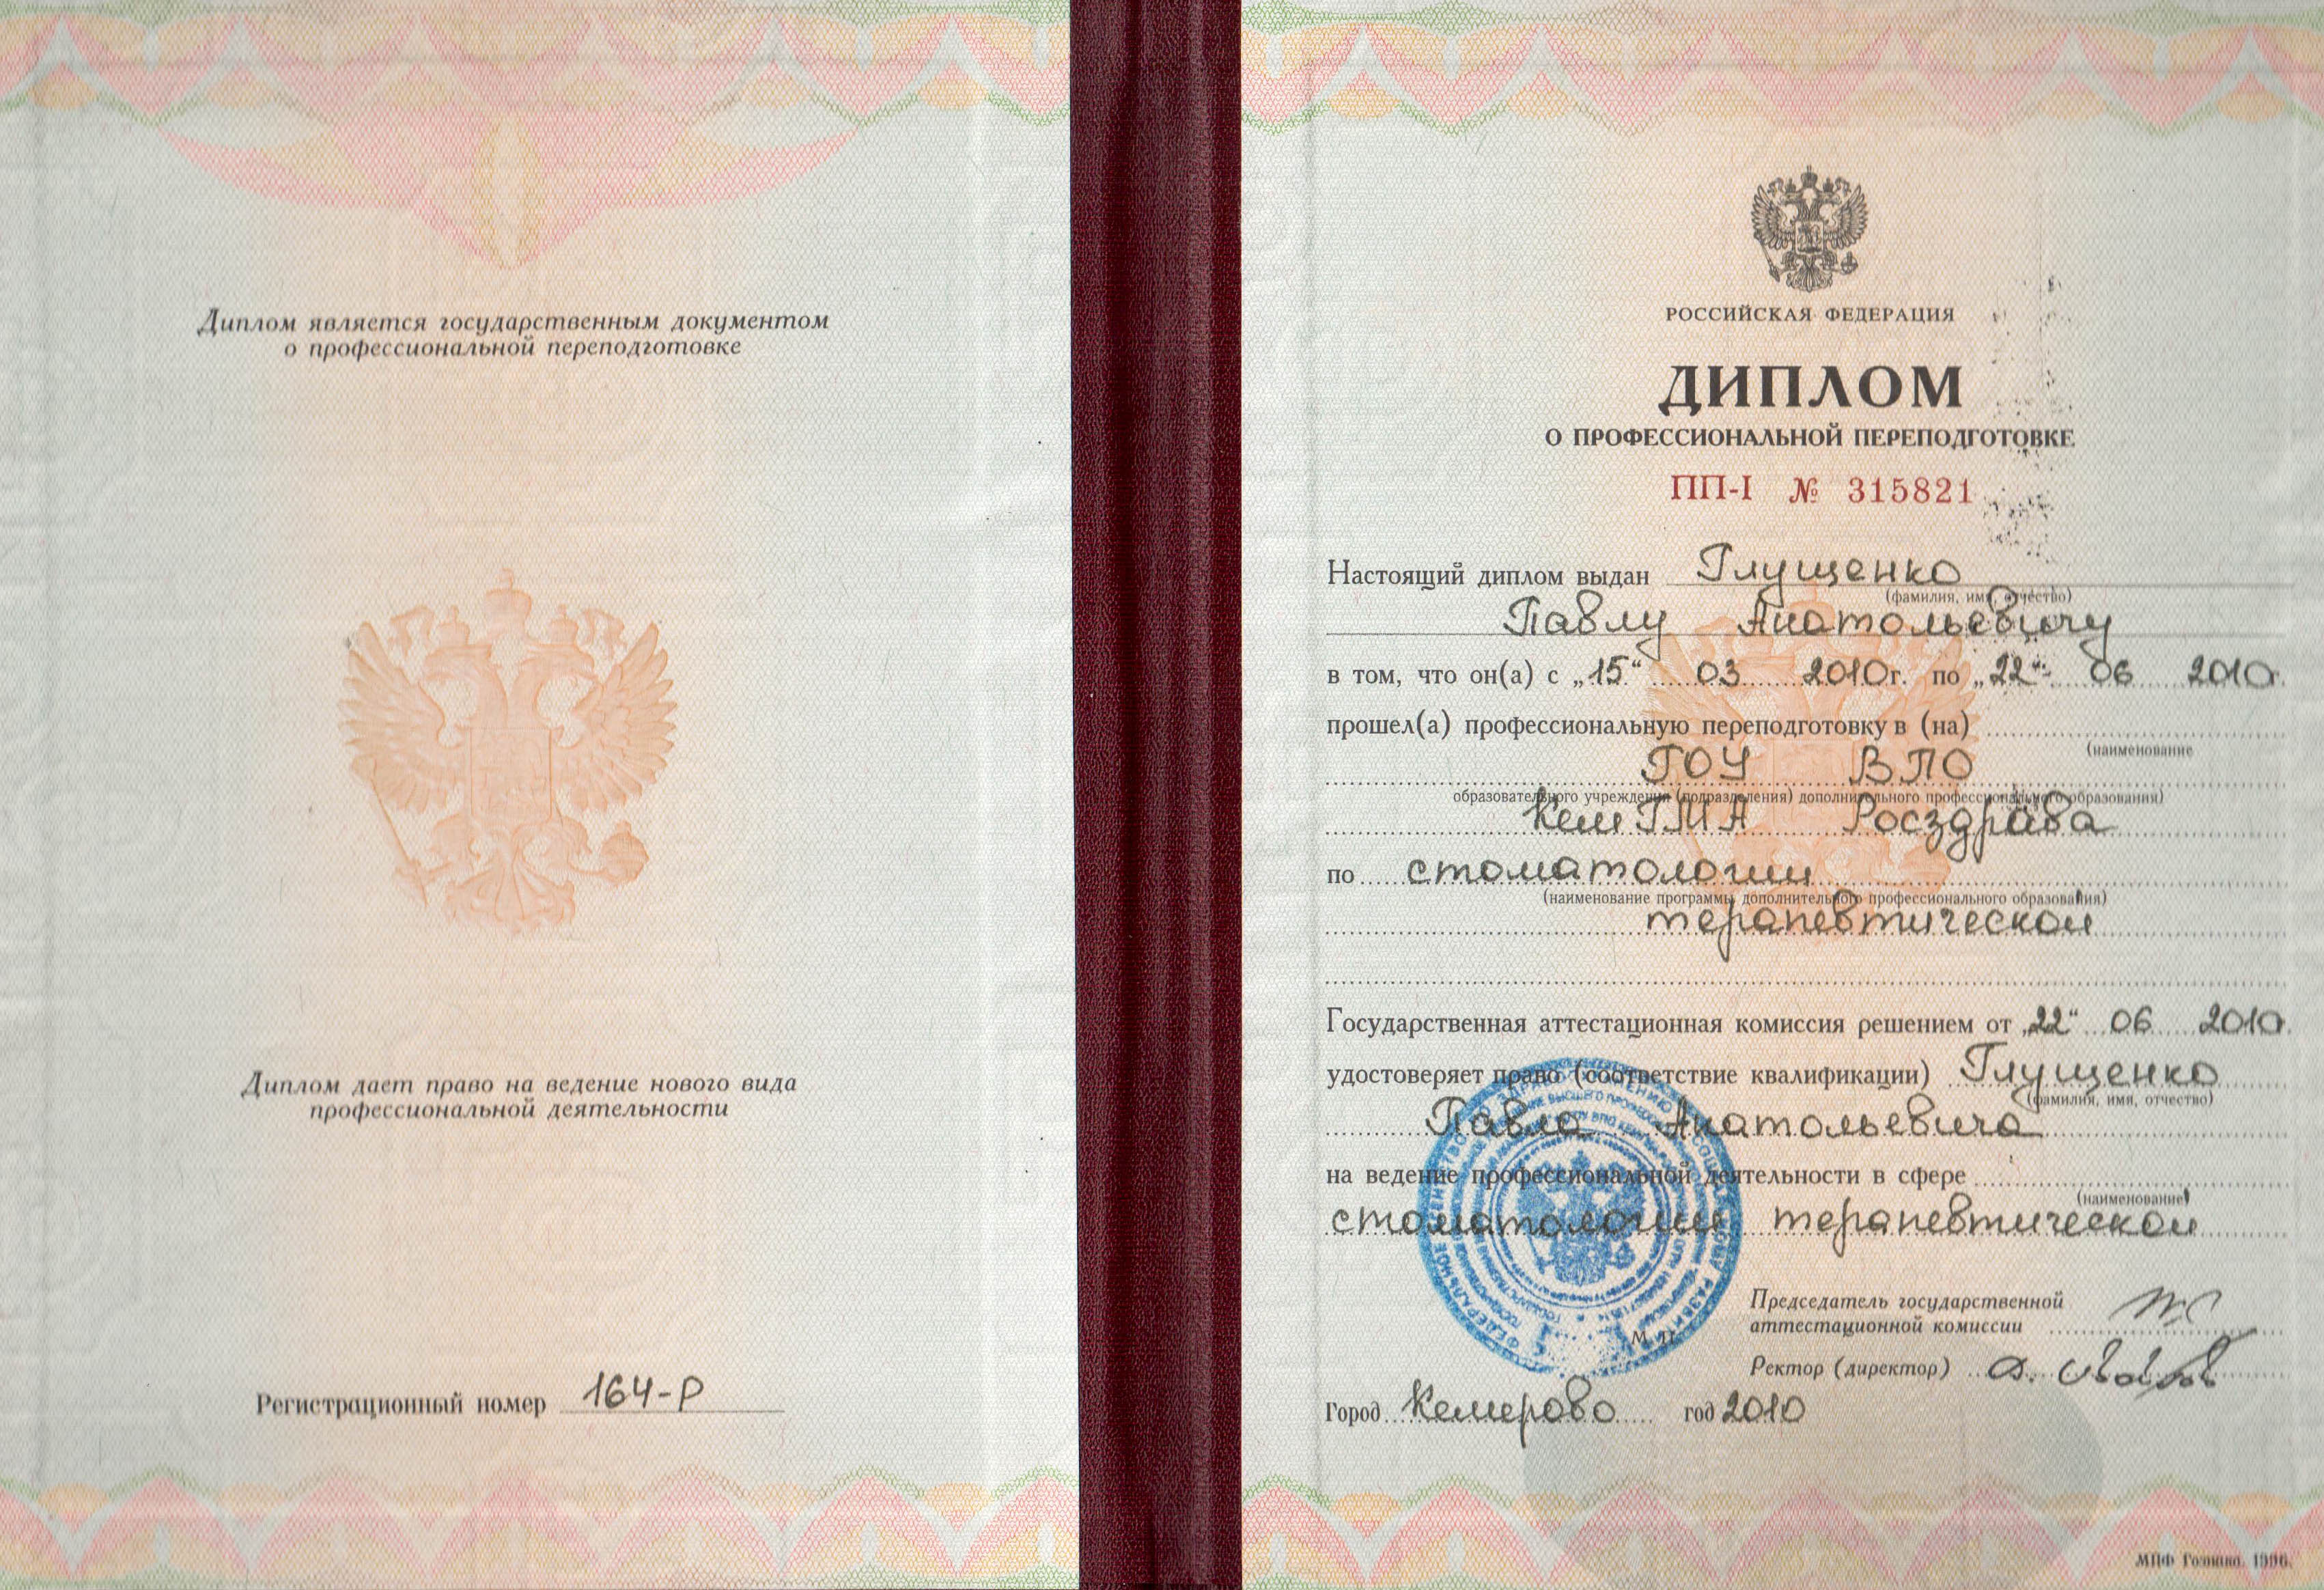 Диплом является государственным документом
о профессиональной переподготовке
Диплом дает право на ведение нового вида
профессиональной деятельности
Регистрационный номер 164-Р
РОССИЙСКАЯ ФЕДЕРАЦИЯ
ДИПЛОМ
О ПРОФЕССИОНАЛЬНОЙ ПЕРЕПОДГОТОВКЕ
ПП-I № 315821
Настоящий диплом выдан Глущенко
(фамилия, имя, отчество)
Павлу Анатольевичу
в том, что он(а) с „15“ 03 2010г. по „22“ 06 2010г.
прошел(а) профессиональную переподготовку в (на)
(наименование
ГОУ ВПО
образовательного учреждения (подразделения) дополнительного профессионального образования)
КемГМА Росздрава
по стоматологии
(наименование программы дополнительного профессионального образования)
терапевтической
Государственная аттестационная комиссия решением от „22“ 06 2010г.
удостоверяет право (соответствие квалификации) Глущенко
(фамилия, имя, отчество)
Павла Анатольевича
на ведение профессиональной деятельности в сфере
(наименование)
стоматологии терапевтической
Председатель государственной
аттестационной комиссии
М.П.
Ректор (директор)
Город Кемерово год 2010
МПФ Гознака. 1996.